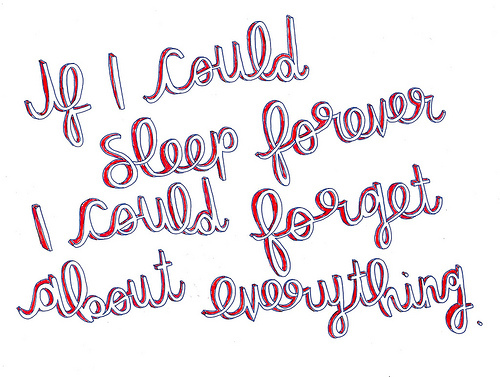 If I could
sleep forever
I could forget
about everything.